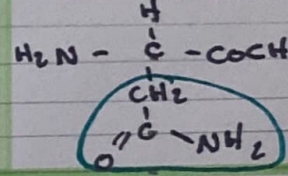 H
H2N - C - COCH
CH2
C
O NH2